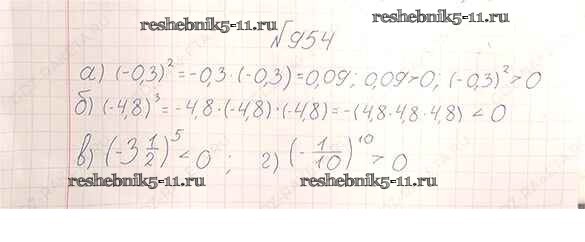 reshebnik5-11.ru reshebnik5-11.ru
№954
а) (-0,3)² = -0,3·(-0,3) = 0,09; 0,09>0; (-0,3)²>0
б) (-4,8)³ = -4,8·(-4,8)·(-4,8) = -(4,8·4,8·4,8) < 0
в) (-3 1/2)⁵ < 0; г) (-1/10)¹⁰ > 0
reshebnik5-11.ru reshebnik5-11.ru